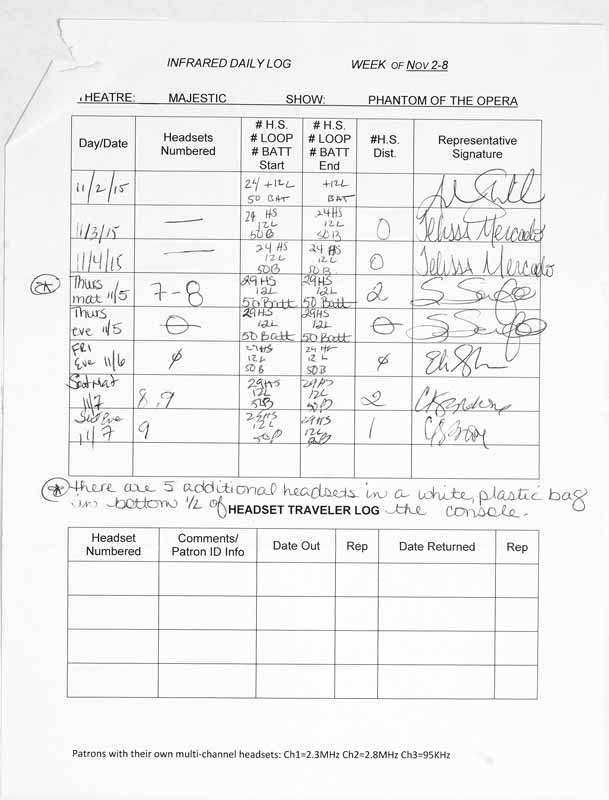 INFRARED DAILY LOG WEEK OF NOV 2-8
THEATRE: MAJESTIC SHOW: PHANTOM OF THE OPERA
Day/Date
Headsets
Numbered
# H.S.
# LOOP
# BATT
Start
# H.S.
# LOOP
# BATT
End
#H.S.
Dist.
Representative
Signature
11/2/15
24 +12L
50 BAT
+12L
BAT
11/3/15
—
24 HS
12L
50B
24HS
12L
50B
0
Jelissa Mercado
11/4/15
—
24 HS
12L
50B
24 HS
12L
50B
0
Jelissa Mercado
*
Thurs
mat 11/5
7-8
29HS
12L
50 Batt
29HS
12L
50 Batt
2
Thurs
eve 11/5
0
29HS
12L
50 Batt
29HS
12L
50 Batt
0
FRI
Eve 11/6
ø
29HS
12L
50B
29 HS
12L
50B
ø
Sat Mat
11/7
8,9
29HS
12L
50B
29HS
12L
50B
2
Sat Eve
11/7
9
12L
29HS
12L
1
* There are 5 additional headsets in a white, plastic bag
in bottom 1/2 of the console.
HEADSET TRAVELER LOG
Headset
Numbered
Comments/
Patron ID Info
Date Out
Rep
Date Returned
Rep
Patrons with their own multi-channel headsets: Ch1=2.3MHz Ch2=2.8MHz Ch3=95KHz